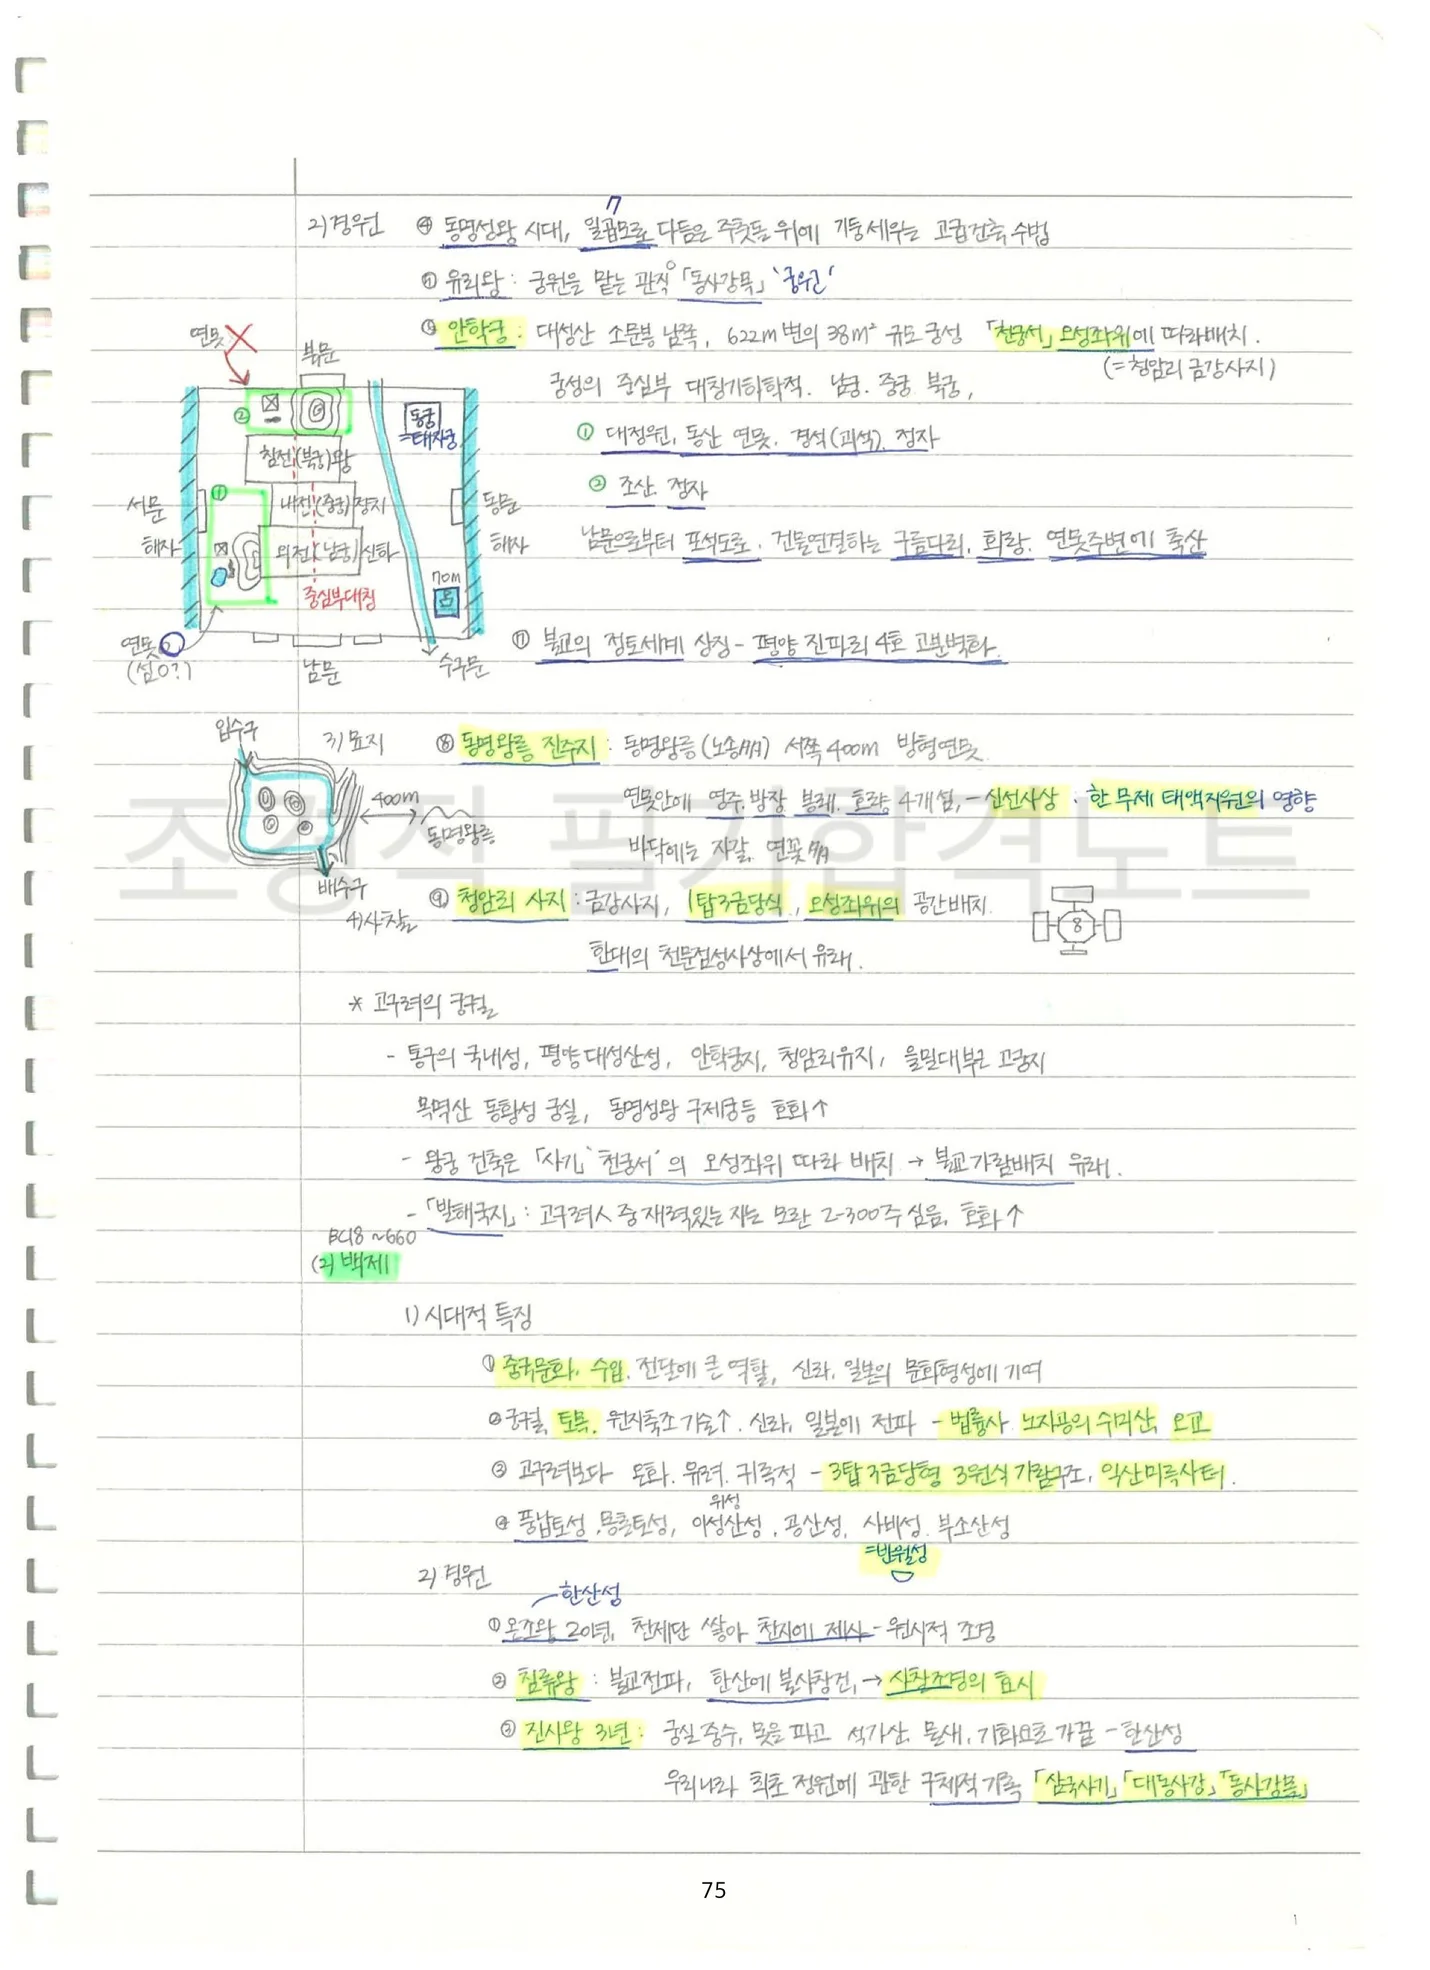 2) 경원 ④ 동명성왕 시대, 일곱모로 다듬은 주춧돌 위에 기둥세우는 고급건축 수법
7
⑤ 유리왕 : 궁원을 맡는 관직 「동사강목」 '궁원'
⑥ 안학궁 : 대성산 소문봉 남쪽, 622m 변의 38m² 규모 궁성 「천궁서」 오성좌위에 따라배치.
(= 청암리 금강사지)
궁성의 중심부 대칭기하학적. 남궁. 중궁 북궁,
① 대정원, 동산 연못. 경석(괴석). 정자
② 조산. 정자
남문으로부터 포석도로. 건물연결하는 구름다리, 회랑. 연못주변에 축산
연못 X
북문
②
동궁
=태자궁
침전(북궁)왕
①
서문
내전(중궁)정치
동문
해자
외전(남궁)신하
해자
70m
중심부대칭
연못 O
(섬O?)
남문
수구문
⑦ 불교의 정토세계 상징 - 평양 진파리 4호 고분벽화.
입수구
3) 묘지 ⑧ 동명왕릉 진주지 : 동명왕릉(노송林) 서쪽 400m 방형연못.
400m
동명왕릉
연못안에 영주. 방장 봉래. 호량 4개섬, - 신선사상. 한 무제 태액지원의 영향
바닥에는 자갈, 연꽃
배수구
4) 사찰 ⑨ 청암리 사지 : 금강사지, 1탑3금당식, 오성좌위의 공간배치.
8
한대의 천문점성사상에서 유래.
* 고구려의 궁궐
- 통구의 국내성, 평양 대성산성, 안학궁지, 청암리유지, 을밀대부근 고궁지
목멱산 동황성 궁실, 동명성왕 구제궁등 호화↑
- 왕궁 건축은 「사기」 '천궁서'의 오성좌위 따라 배치 → 불교가람배치 유래.
- 「발해국지」 : 고구려人 중 재력있는 자는 모란 2-300주 심음, 호화↑
BC18 ~660
(2) 백제
1) 시대적 특징
① 중국문화, 수입. 전달에 큰 역할, 신라, 일본의 문화형성에 기여
② 궁궐, 토목. 원지축조 기술↑. 신라, 일본에 전파 - 법륭사. 노자공의 수미산, 오교
③ 고구려보다 온화. 유려. 귀족적 - 3탑3금당형 3원식 가람구조, 익산미륵사터.
위성
④ 풍납토성, 몽촌토성, 이성산성, 공산성, 사비성. 부소산성
=반월성
2) 경원
한산성
① 온조왕 20년, 천제단 쌓아 천지에 제사 - 원시적 조경
② 침류왕 : 불교전파, 한산에 불사창건, → 사찰조경의 효시
③ 진사왕 3년 : 궁실 중수, 못을 파고 석가산. 물새, 기화요초 가꿈 - 한산성
우리나라 최초 정원에 관한 구체적 기록 「삼국사기」 「대동사강」 「동사강목」
조경직 필기합격노트
75
1